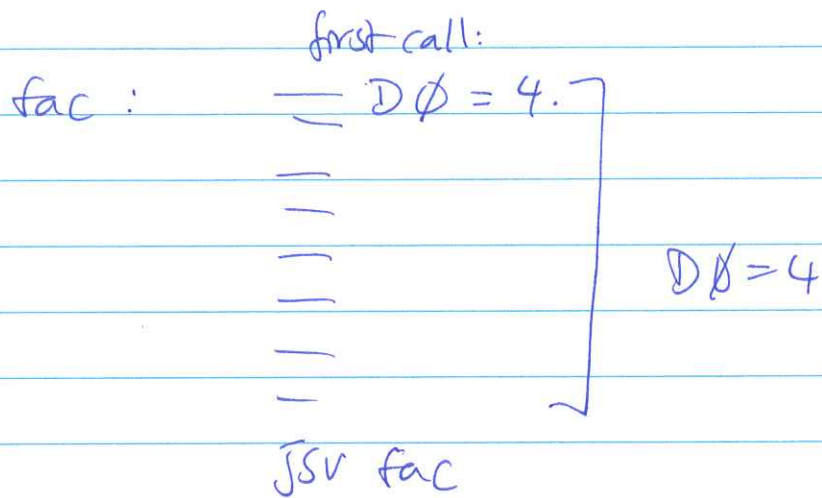 first call:
fac : DØ = 4.
DØ = 4
jsr fac